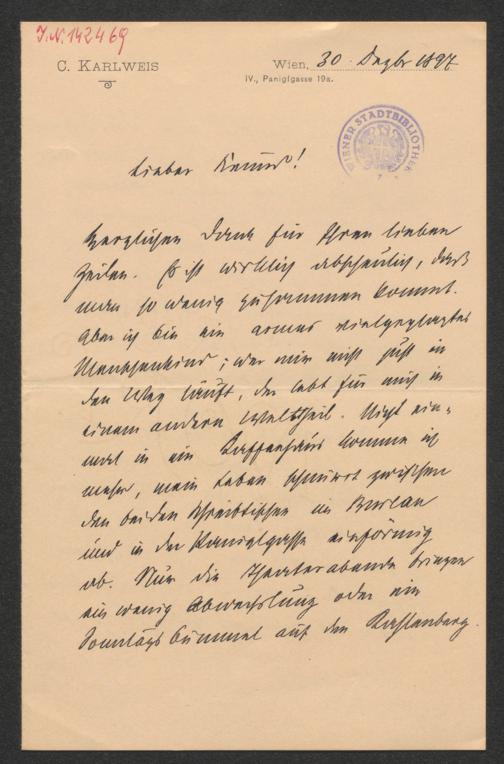 J.N. 142469
C. KARLWEIS
Wien, 30 Dezbr 1897
IV., Panigl­gasse 19a.
WIENER STADTBIBLIOTHEK
Lieber Freund!
Herzlichen Dank für Ihren lieben
Zeilen. Es ist wirklich abscheulich, daß
man so wenig zusammen kommt.
Aber ich bin ein armes vielgeplagtes
Menschenkind; wer mir nicht just in
den Weg läuft, der lebt für mich in
einem andern Welttheil. Nicht ein-
mal in ein Kaffeehaus komme ich
mehr, mein Leben schnurrt zwischen
den beiden Schreibtischen im Bureau
und in der Paniglgasse einförmig
ab. Nur die Theaterabende bringen
ein wenig Abwechslung oder ein
Sonntagsbummel auf den Kahlenberg.